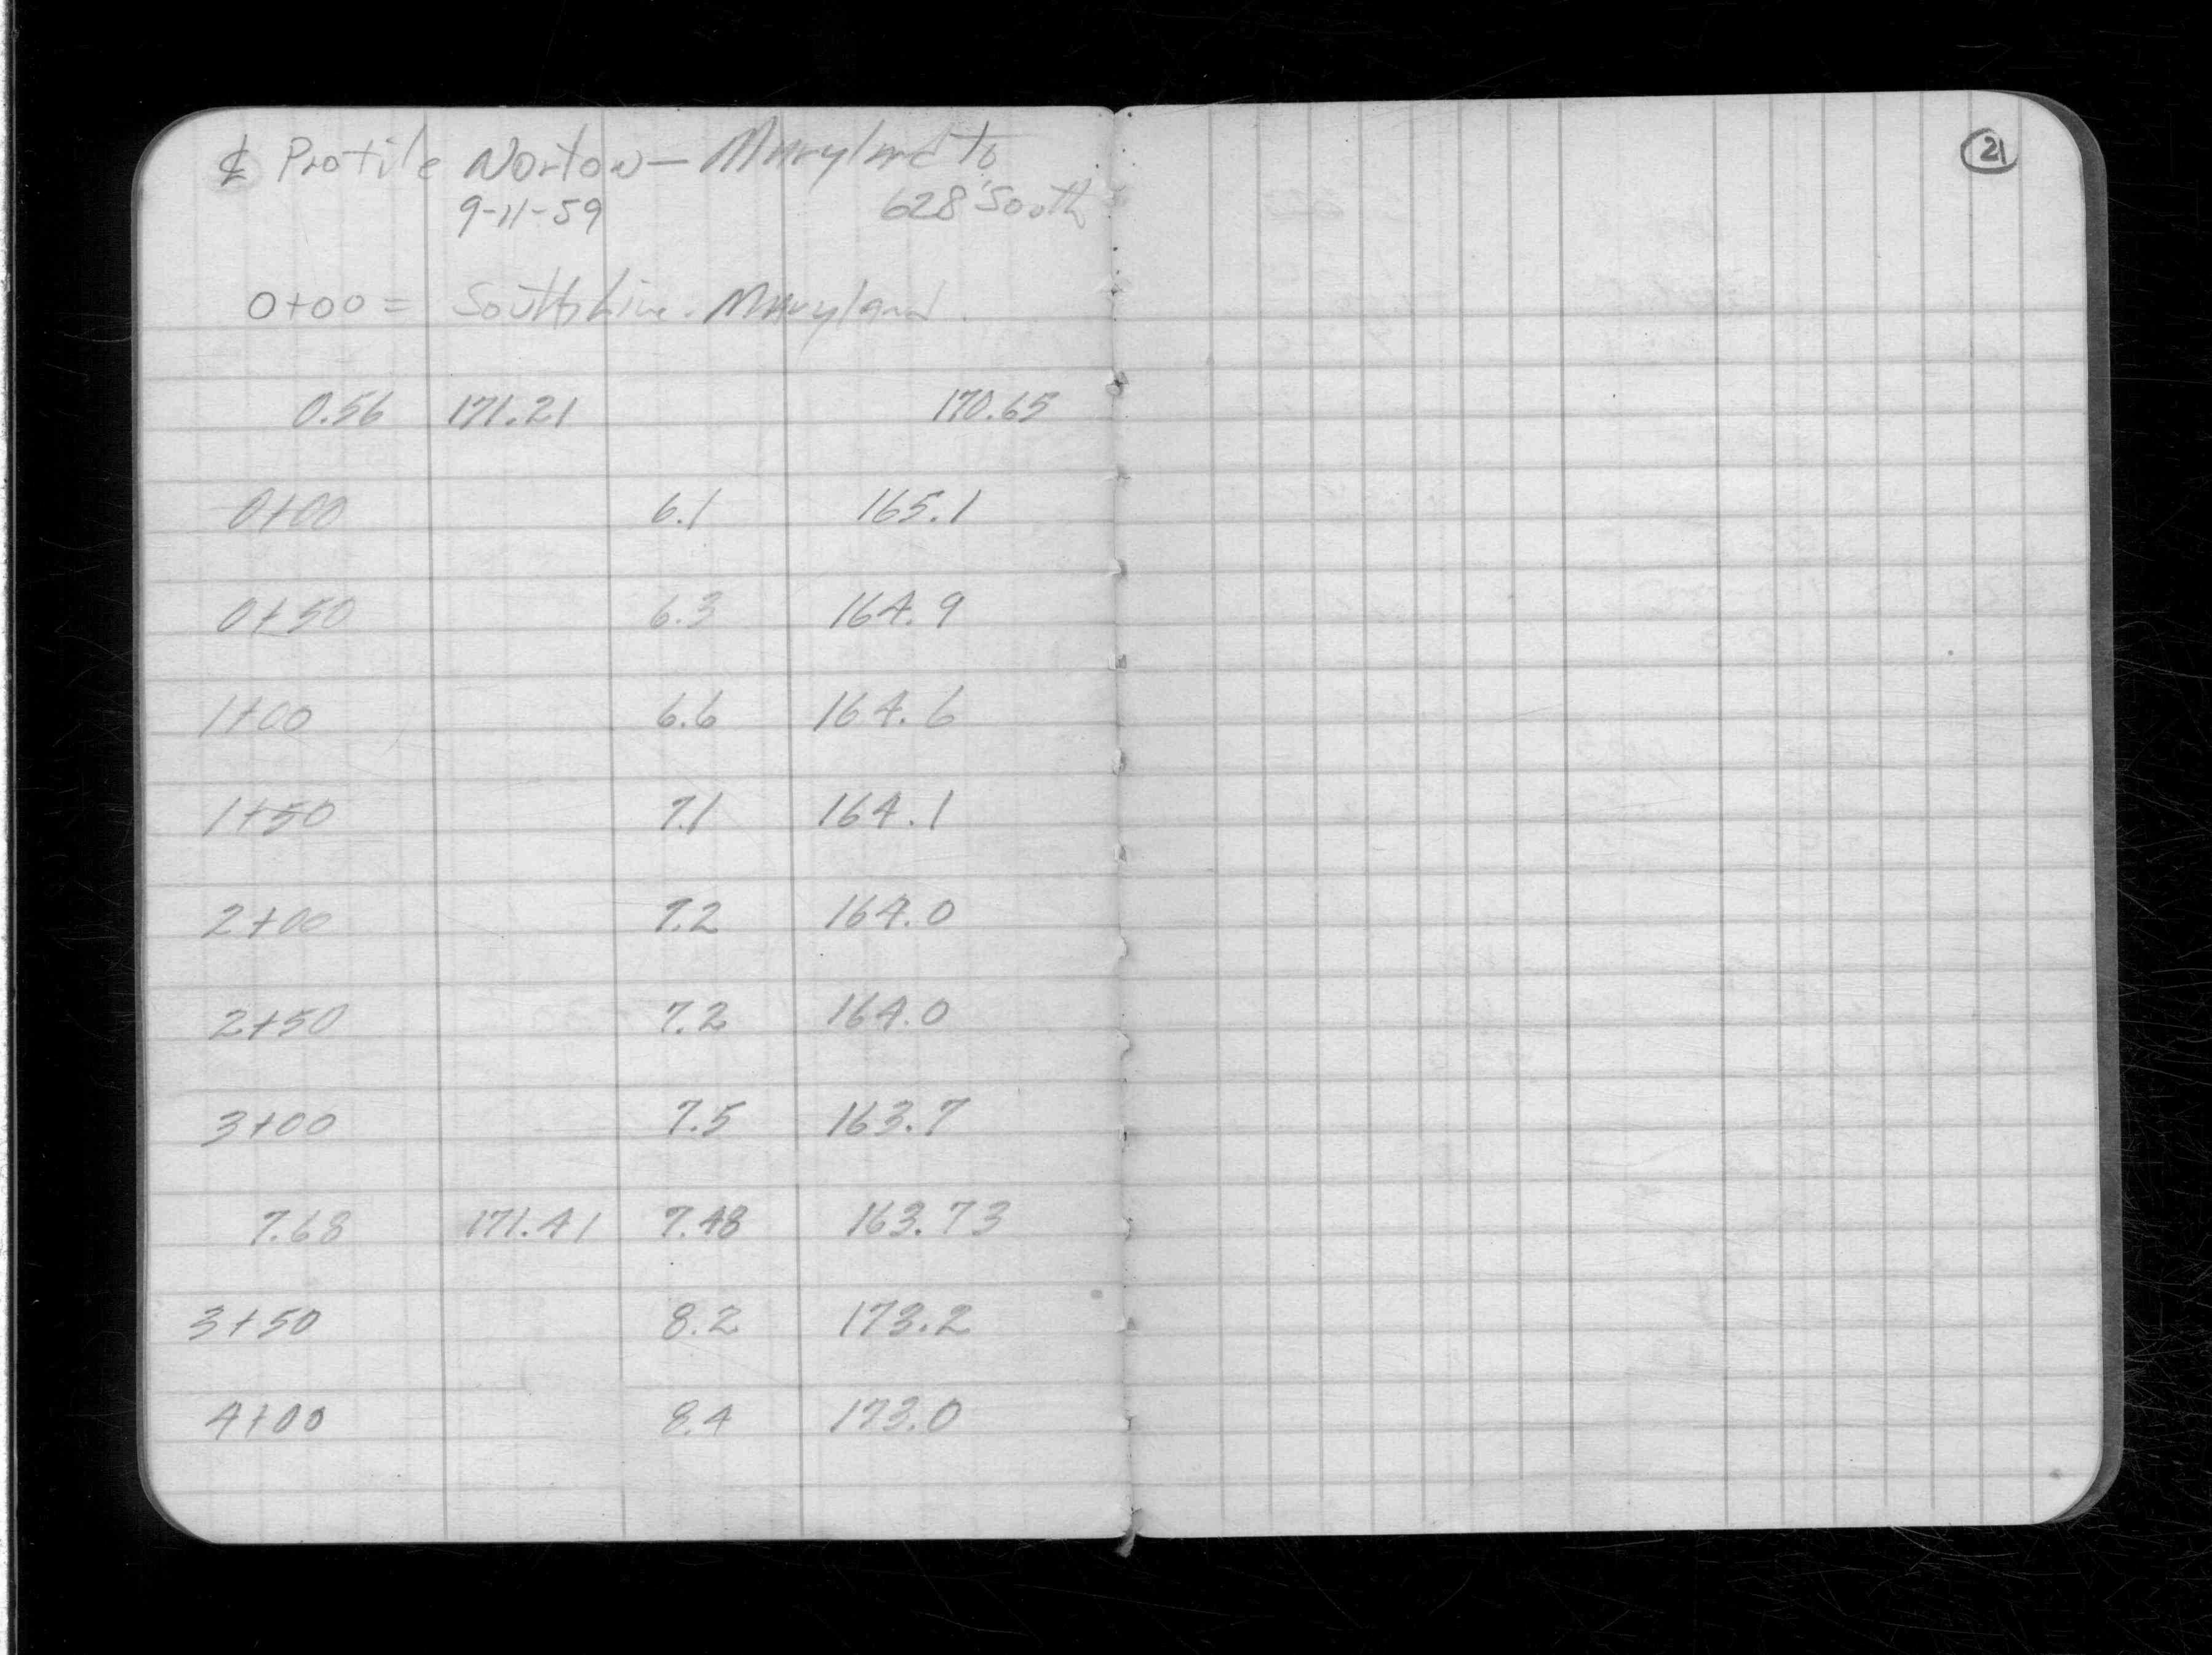 ℄ Profile Norton — Maryland to
9-11-59 628' South
0+00 = South Line. Maryland.
0.56 171.21 170.65
0+00 6.1 165.1
0+50 6.3 164.9
1+00 6.6 164.6
1+50 7.1 164.1
2+00 7.2 164.0
2+50 7.2 164.0
3+00 7.5 163.7
7.68 171.41 7.48 163.73
3+50 8.2 173.2
4+00 8.4 173.0
21